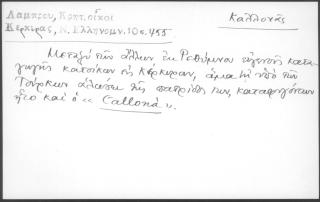 Λαμπρου, Κρητ. οἶκοι
Κέρκυρας, Ν. Ἑλληνομν. 10 σ. 455
Καλλονᾶς
Μεταξὺ τῶν ἄλλων ἐκ Ρεθύμνου εὐγενοῦς κατα-
γωγῆς κατοίκων εἰς Κέρκυραν, ἅμα τῇ ὑπὸ τῶν
Τούρκων ἁλώσει τῆς πατρίδος των, καταφυγόντων
ἦτο καὶ ὁ «Callona».